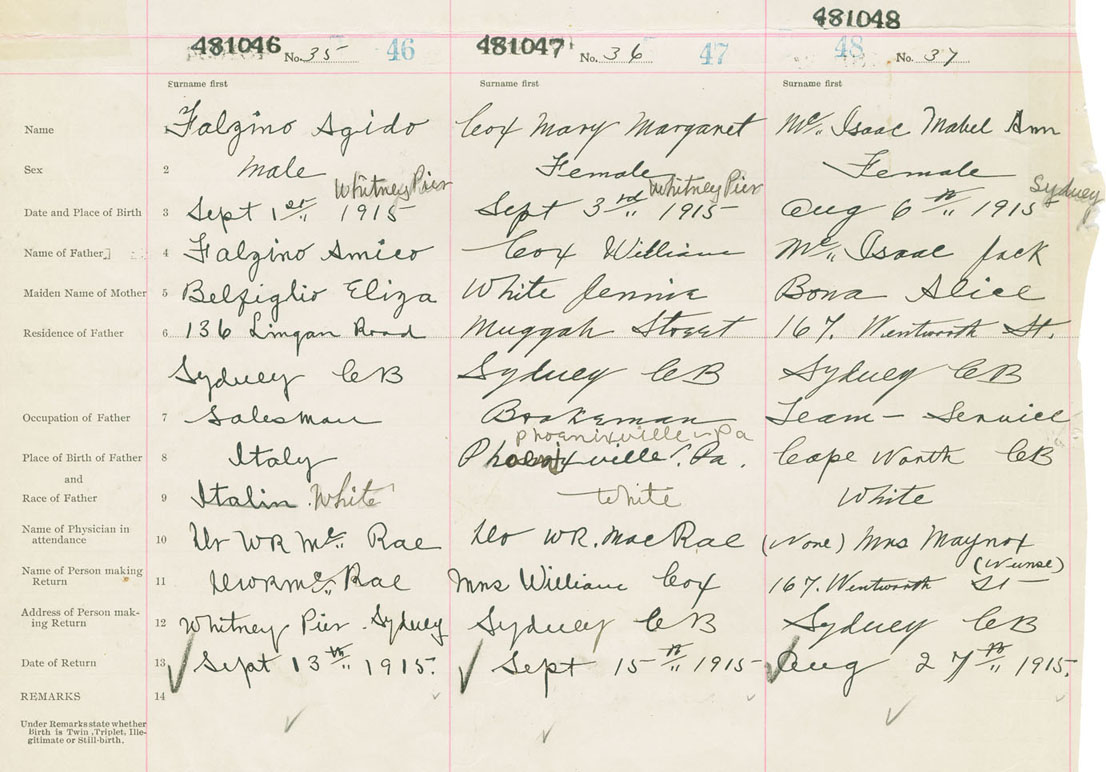 481046 No. 35 46 481047 No. 36 47 481048 48 No. 37
Surname first Surname first Surname first
Name 1 Falzino Agido Cox Mary Margaret Mc,, Isaac Mabel Ann
Sex 2 male Female Female
Whitney Pier Whitney Pier Sydney
Date and Place of Birth 3 Sept 1st,, 1915 Sept 3rd,, 1915 Aug 6th,, 1915
Name of Father 4 Falzino Amico Cox William Mc,, Isaac Jack
Maiden Name of Mother 5 Belfiglio Eliza White Jennie Bona Alice
Residence of Father 6 136 Lingan Road Muggah Street 167. Wentworth St.
Sydney CB Sydney CB Sydney CB
Occupation of Father 7 Salesman Brakeman Team - Service
Phoenixville - Pa
Place of Birth of Father 8 Italy Phoenixville. Pa. Cape North CB
and
Race of Father 9 Italin White White White
Name of Physician in
attendance 10 Dr WR Mc,, Rae Dr WR. MacRae (None) Mrs Maynot
(Nurse)
Name of Person making
Return 11 Dr WR Mc,, Rae Mrs William Cox 167. Wentworth St
Address of Person mak-
ing Return 12 Whitney Pier. Sydney Sydney CB Sydney CB
Date of Return 13 Sept 13th,, 1915. Sept 15th,, 1915 Aug 27th,, 1915.
REMARKS 14
Under Remarks state whether
Birth is Twin, Triplet, Ille-
gitimate or Still-birth.